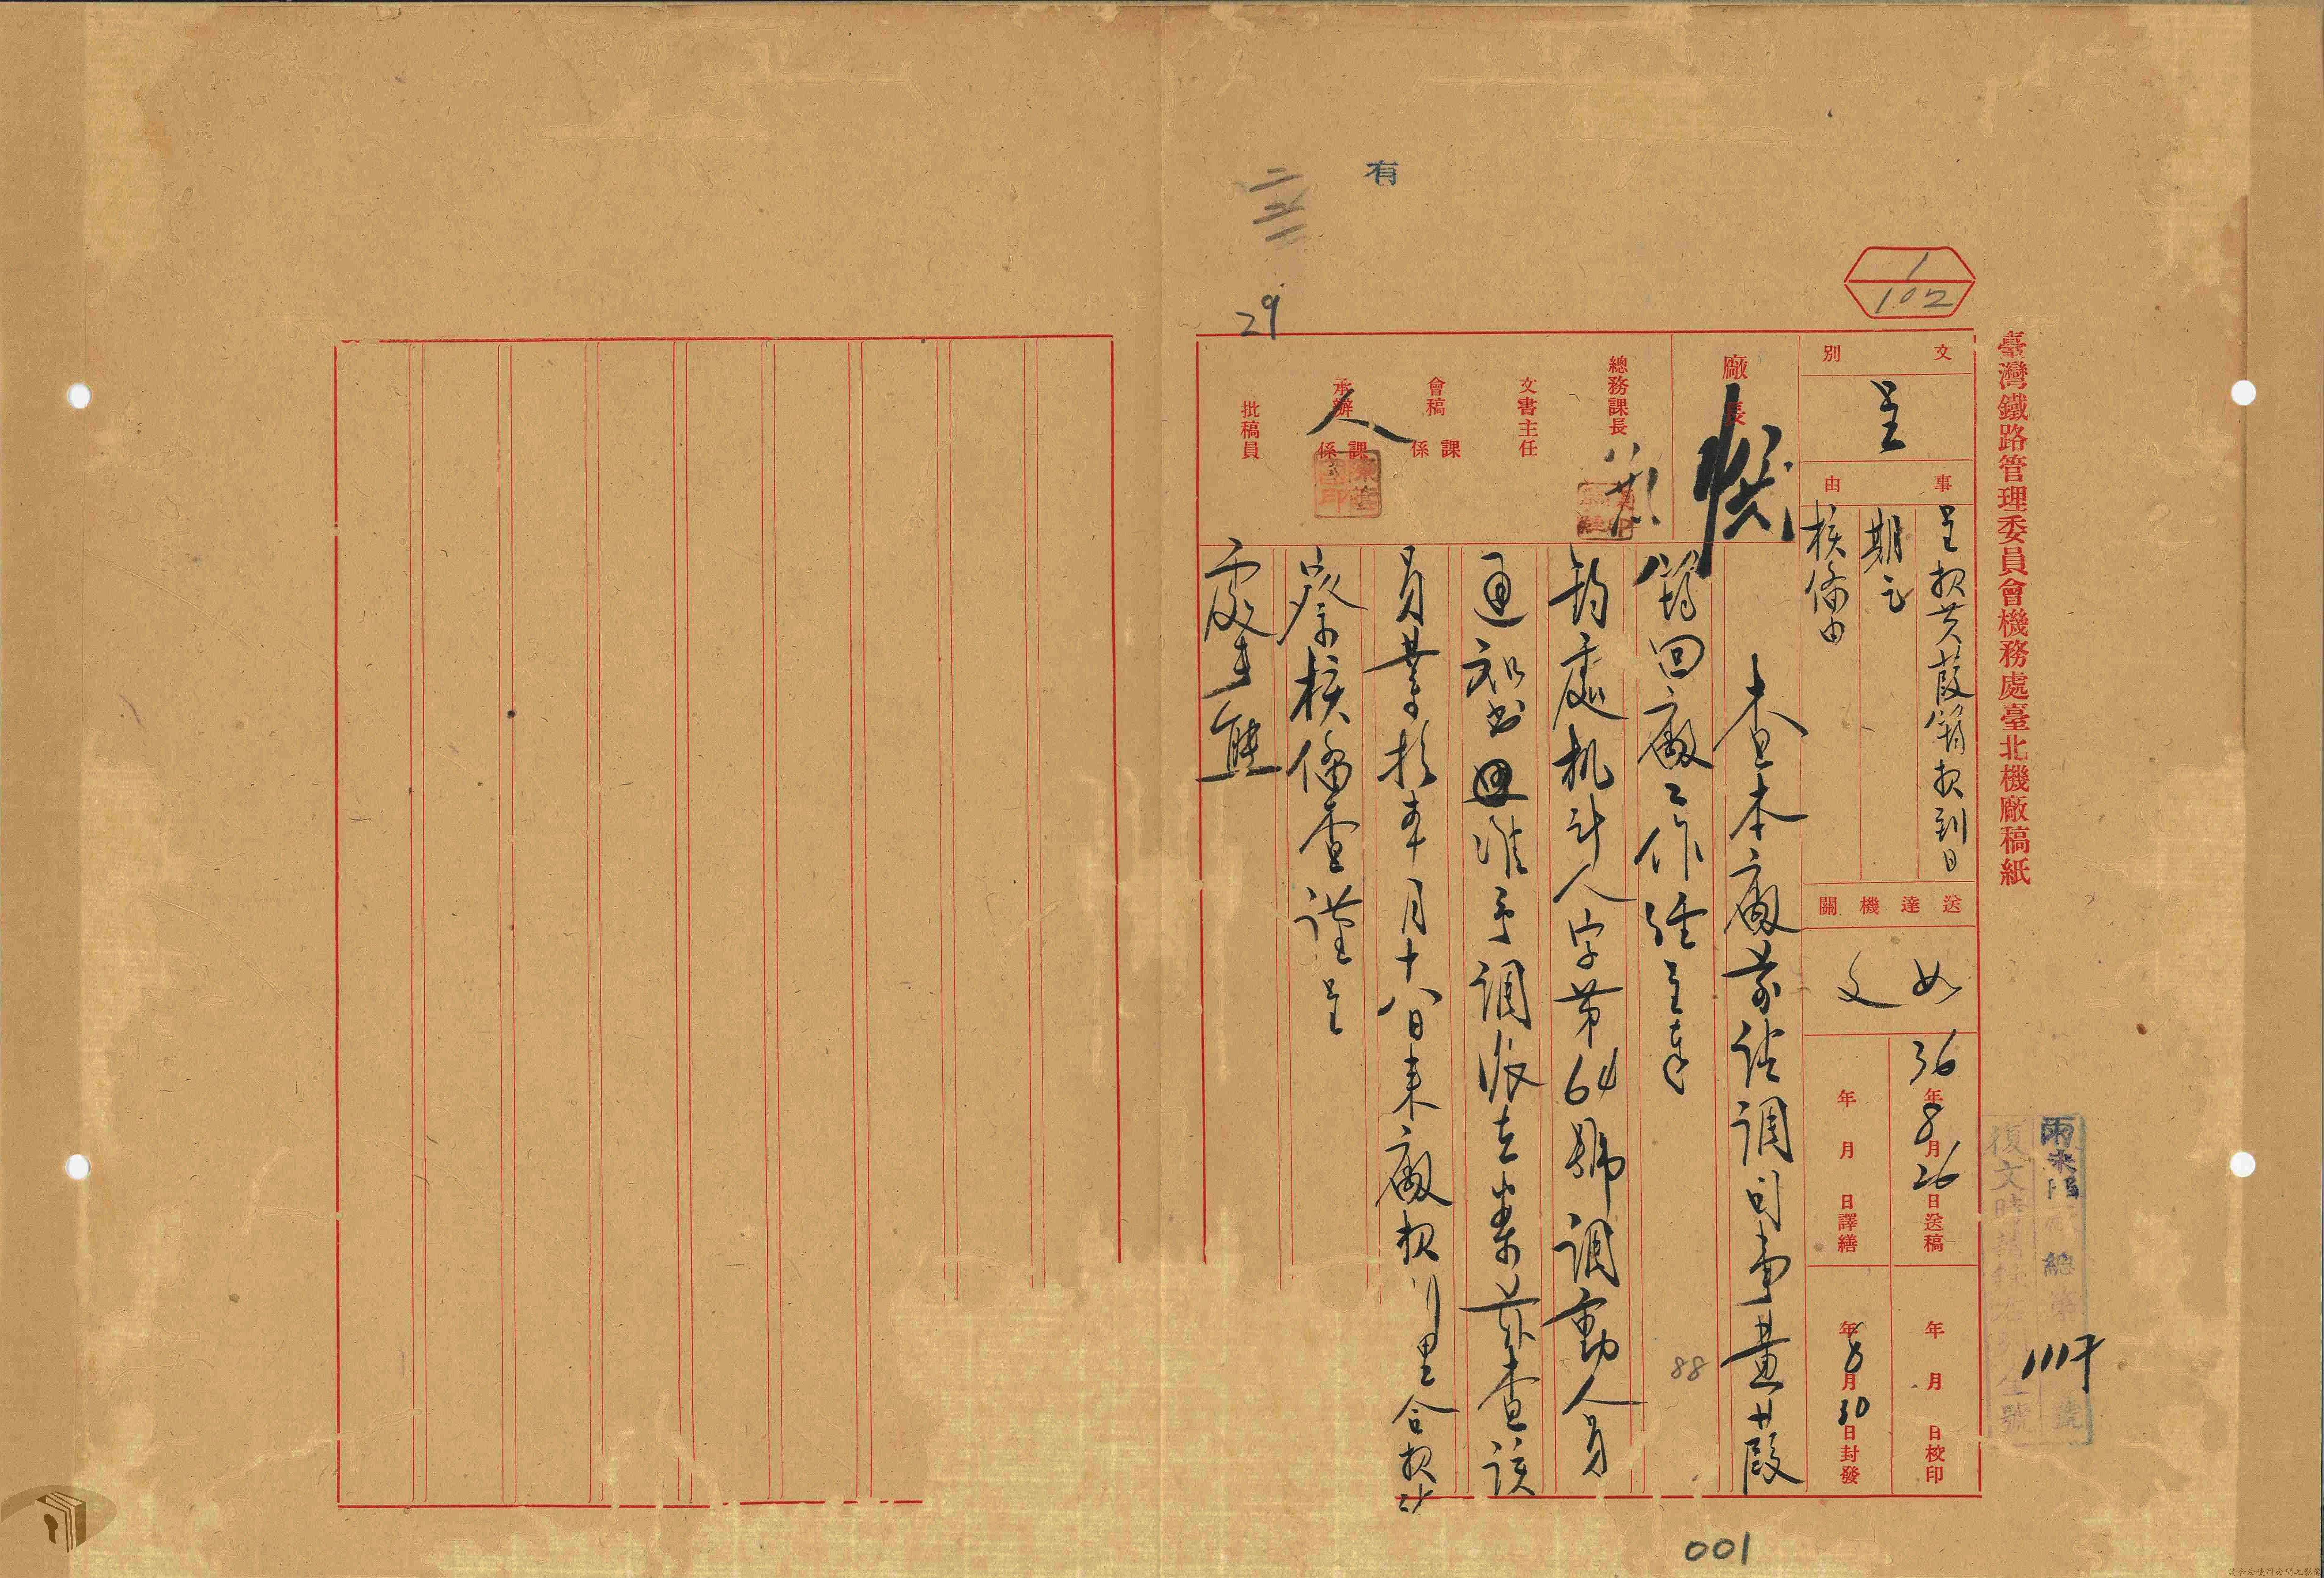 臺灣鐵路管理委員會機務處臺北機廠稿紙
1
102
文別
呈
事由
呈報黃葭簫報到日
期乞
核備由
送達機關
如文
36年8月26日送稿
年月日譯繕
年月日校印
年8月30日封發
廠長
總務課長
文書主任
會稿
課
係
承辦
人
課
係
批稿員
查本廠前請調司事黃葭
簫回廠工作經呈奉
鈞處机計人字第64號調動人員
通知書照准予調派在案茲查該
員業於本月十八日來廠報到理合報請
察核備查謹呈
處長熊
有
29
88
總第號
111千
復文時請註本列左號
001